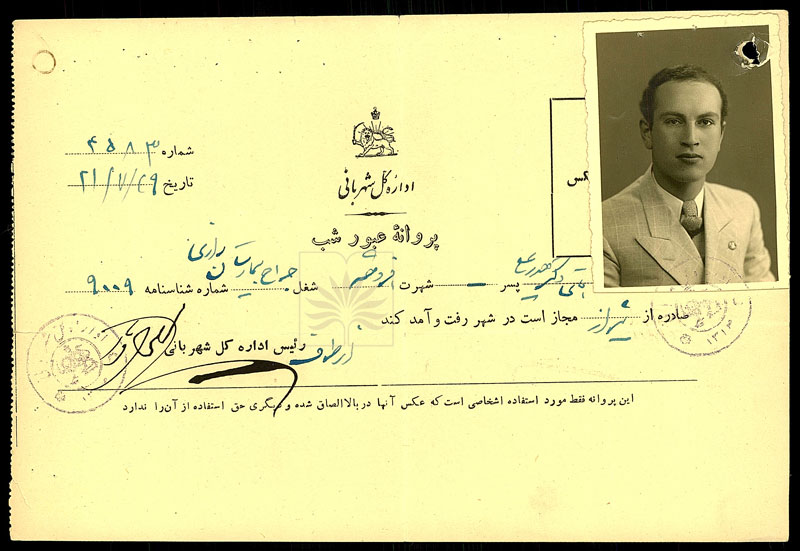 شماره ۴۵۸۳
تاریخ ۲۱/۷/۲۹
عکس
ادارهٔ کل شهربانی
پروانهٔ عبور شب
آقای دکتر پسر — شهرت شغل جراح بیمارستان رازی شماره شناسنامه ۹۰۰۹
صادره از شیراز مجاز است در شهر رفت و آمد کند
از طرف رئیس اداره کل شهربانی
این پروانه فقط مورد استفاده اشخاصی است که عکس آنها در بالا الصاق شده و دیگری حق استفاده از آن را ندارد